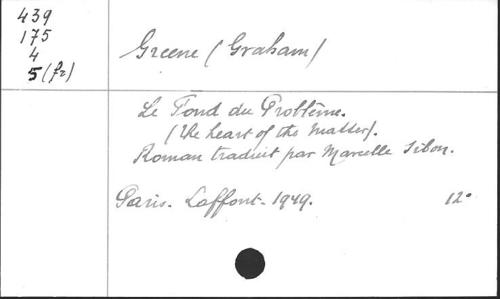 439
175
4
5 (fr)
Greene (Graham)
Le Fond du Problème.
(The heart of the matter).
Roman traduit par Marcelle Sibon.
Paris. Laffont. 1949. 12°